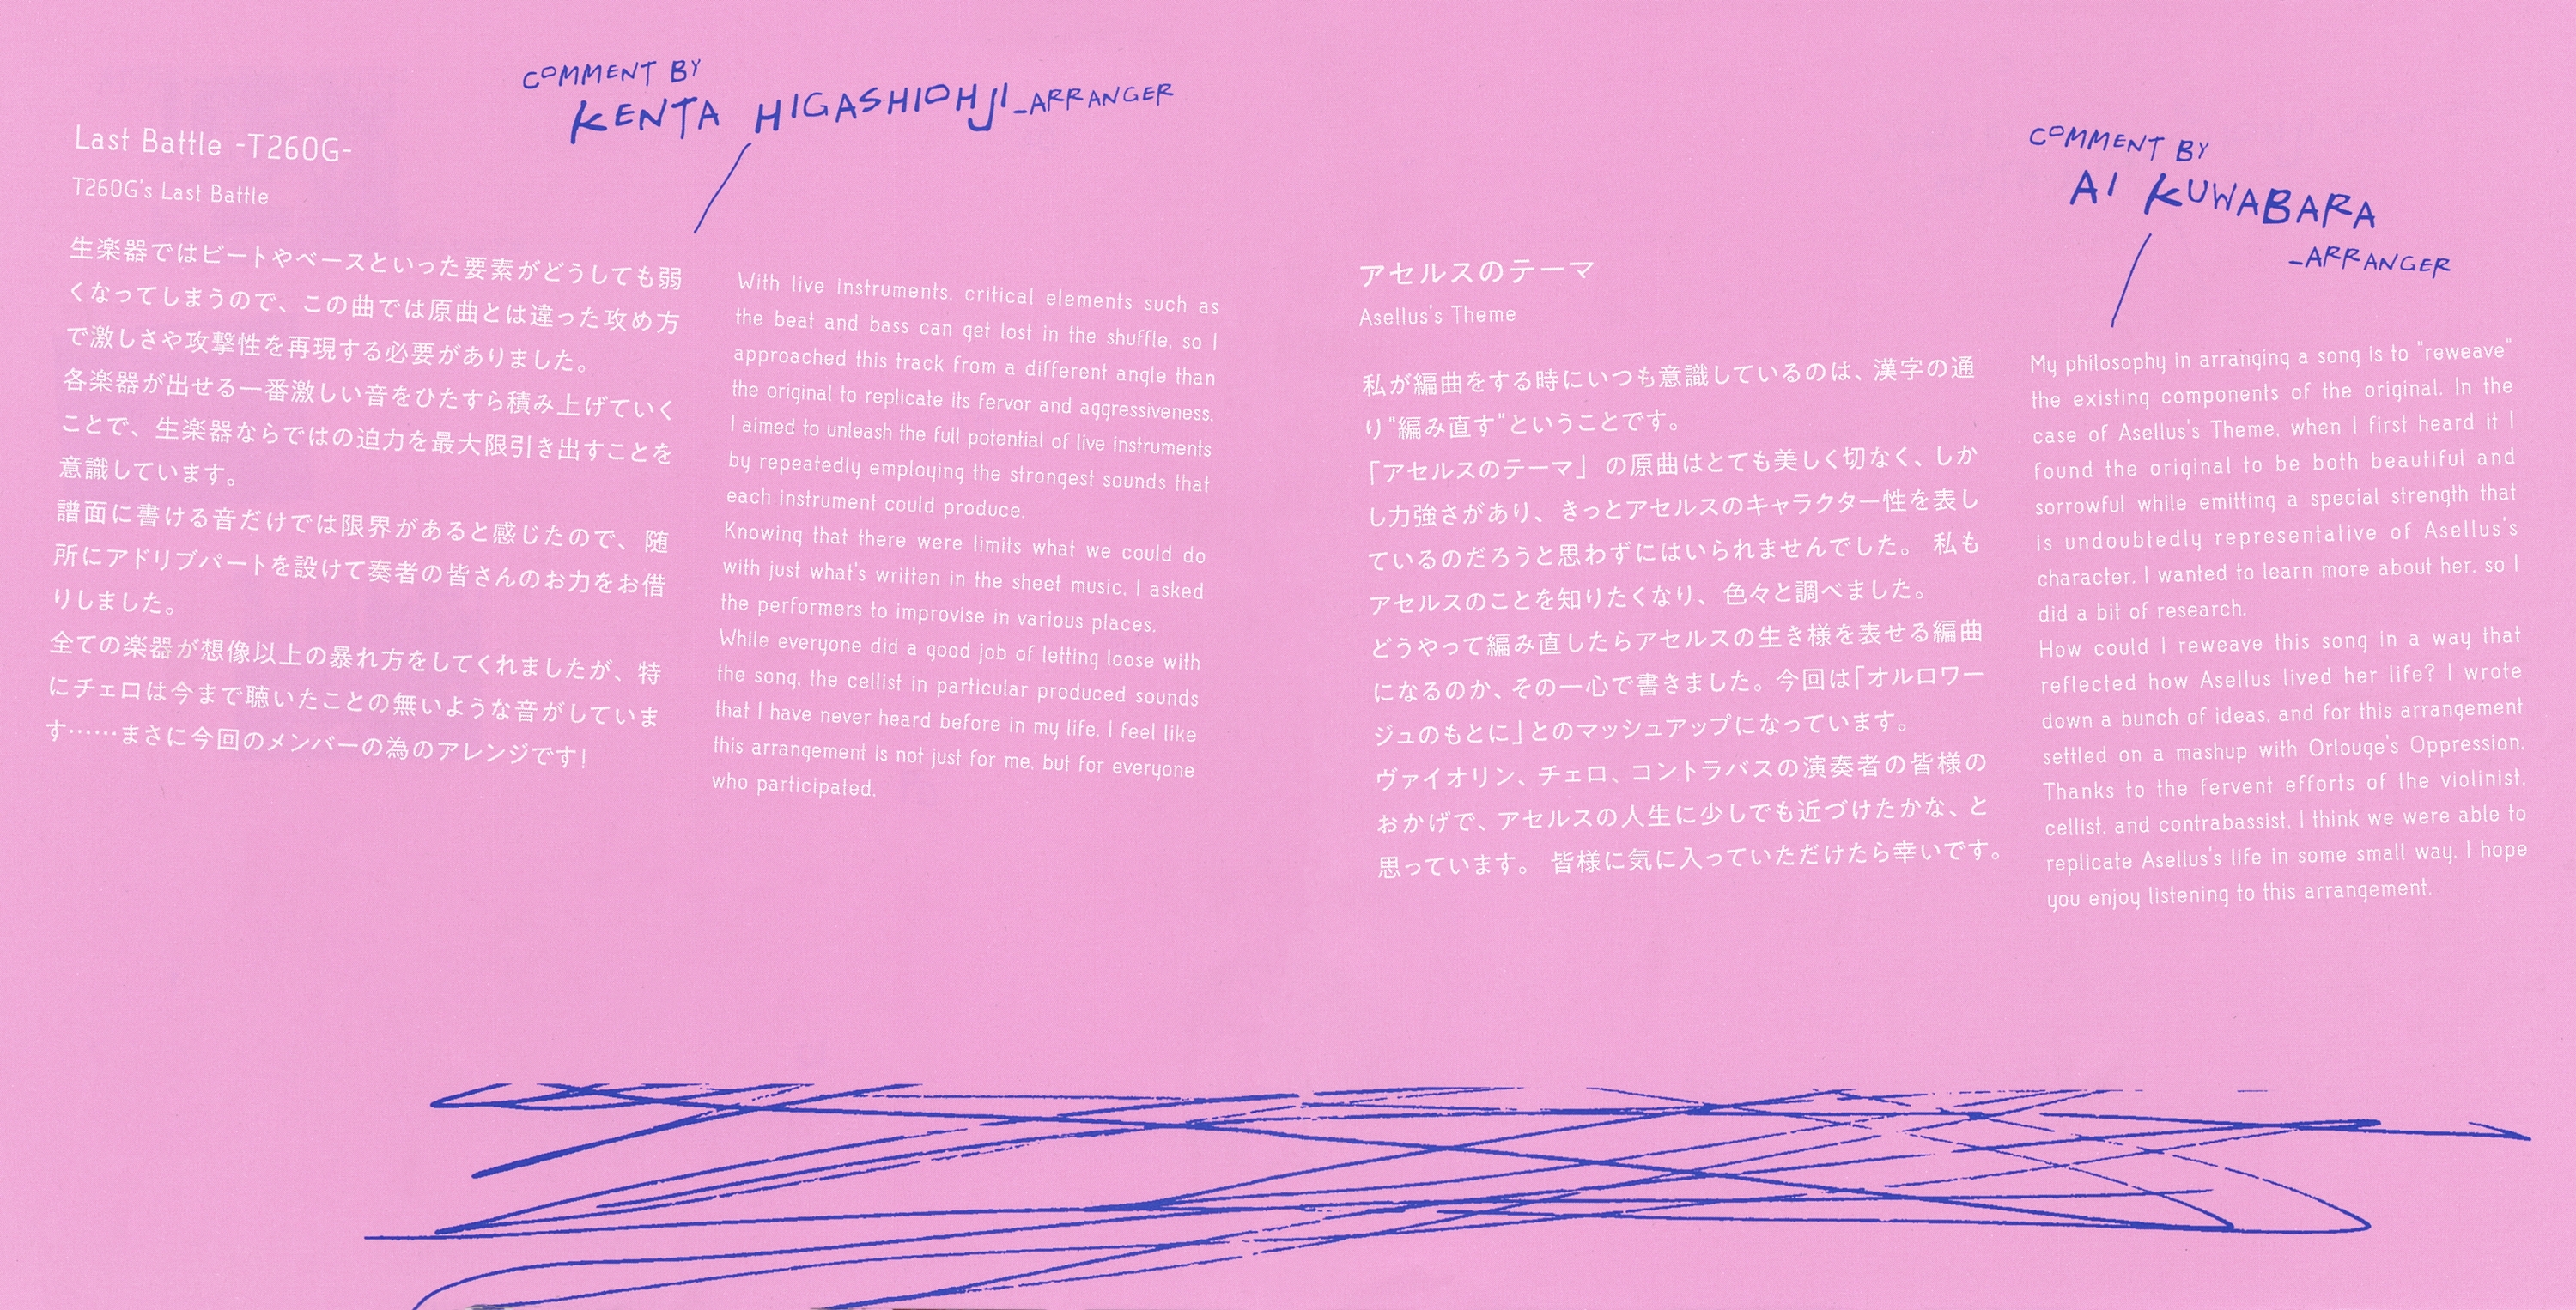 COMMENT BY
KENTA HIGASHIOHJI_ARRANGER
Last Battle -T260G-
T260G's Last Battle
生楽器ではビートやベースといった要素がどうしても弱
くなってしまうので、この曲では原曲とは違った攻め方
で激しさや攻撃性を再現する必要がありました。
各楽器が出せる一番激しい音をひたすら積み上げていく
ことで、生楽器ならではの迫力を最大限引き出すことを
意識しています。
譜面に書ける音だけでは限界があると感じたので、随
所にアドリブパートを設けて奏者の皆さんのお力をお借
りしました。
全ての楽器が想像以上の暴れ方をしてくれましたが、特
にチェロは今まで聴いたことの無いような音がしていま
す……まさに今回のメンバーの為のアレンジです!
With live instruments, critical elements such as
the beat and bass can get lost in the shuffle, so I
approached this track from a different angle than
the original to replicate its fervor and aggressiveness.
I aimed to unleash the full potential of live instruments
by repeatedly employing the strongest sounds that
each instrument could produce.
Knowing that there were limits what we could do
with just what's written in the sheet music, I asked
the performers to improvise in various places.
While everyone did a good job of letting loose with
the song, the cellist in particular produced sounds
that I have never heard before in my life. I feel like
this arrangement is not just for me, but for everyone
who participated.
COMMENT BY
AI KUWABARA
_ARRANGER
アセルスのテーマ
Asellus's Theme
私が編曲をする時にいつも意識しているのは、漢字の通
り"編み直す"ということです。
「アセルスのテーマ」の原曲はとても美しく切なく、しか
し力強さがあり、きっとアセルスのキャラクター性を表し
ているのだろうと思わずにはいられませんでした。 私も
アセルスのことを知りたくなり、色々と調べました。
どうやって編み直したらアセルスの生き様を表せる編曲
になるのか、その一心で書きました。今回は「オルロワー
ジュのもとに」とのマッシュアップになっています。
ヴァイオリン、チェロ、コントラバスの演奏者の皆様の
おかげで、アセルスの人生に少しでも近づけたかな、と
思っています。 皆様に気に入っていただけたら幸いです。
My philosophy in arranging a song is to "reweave"
the existing components of the original. In the
case of Asellus's Theme, when I first heard it I
found the original to be both beautiful and
sorrowful while emitting a special strength that
is undoubtedly representative of Asellus's
character. I wanted to learn more about her, so I
did a bit of research.
How could I reweave this song in a way that
reflected how Asellus lived her life? I wrote
down a bunch of ideas, and for this arrangement
settled on a mashup with Orlouge's Oppression.
Thanks to the fervent efforts of the violinist,
cellist, and contrabassist, I think we were able to
replicate Asellus's life in some small way. I hope
you enjoy listening to this arrangement.